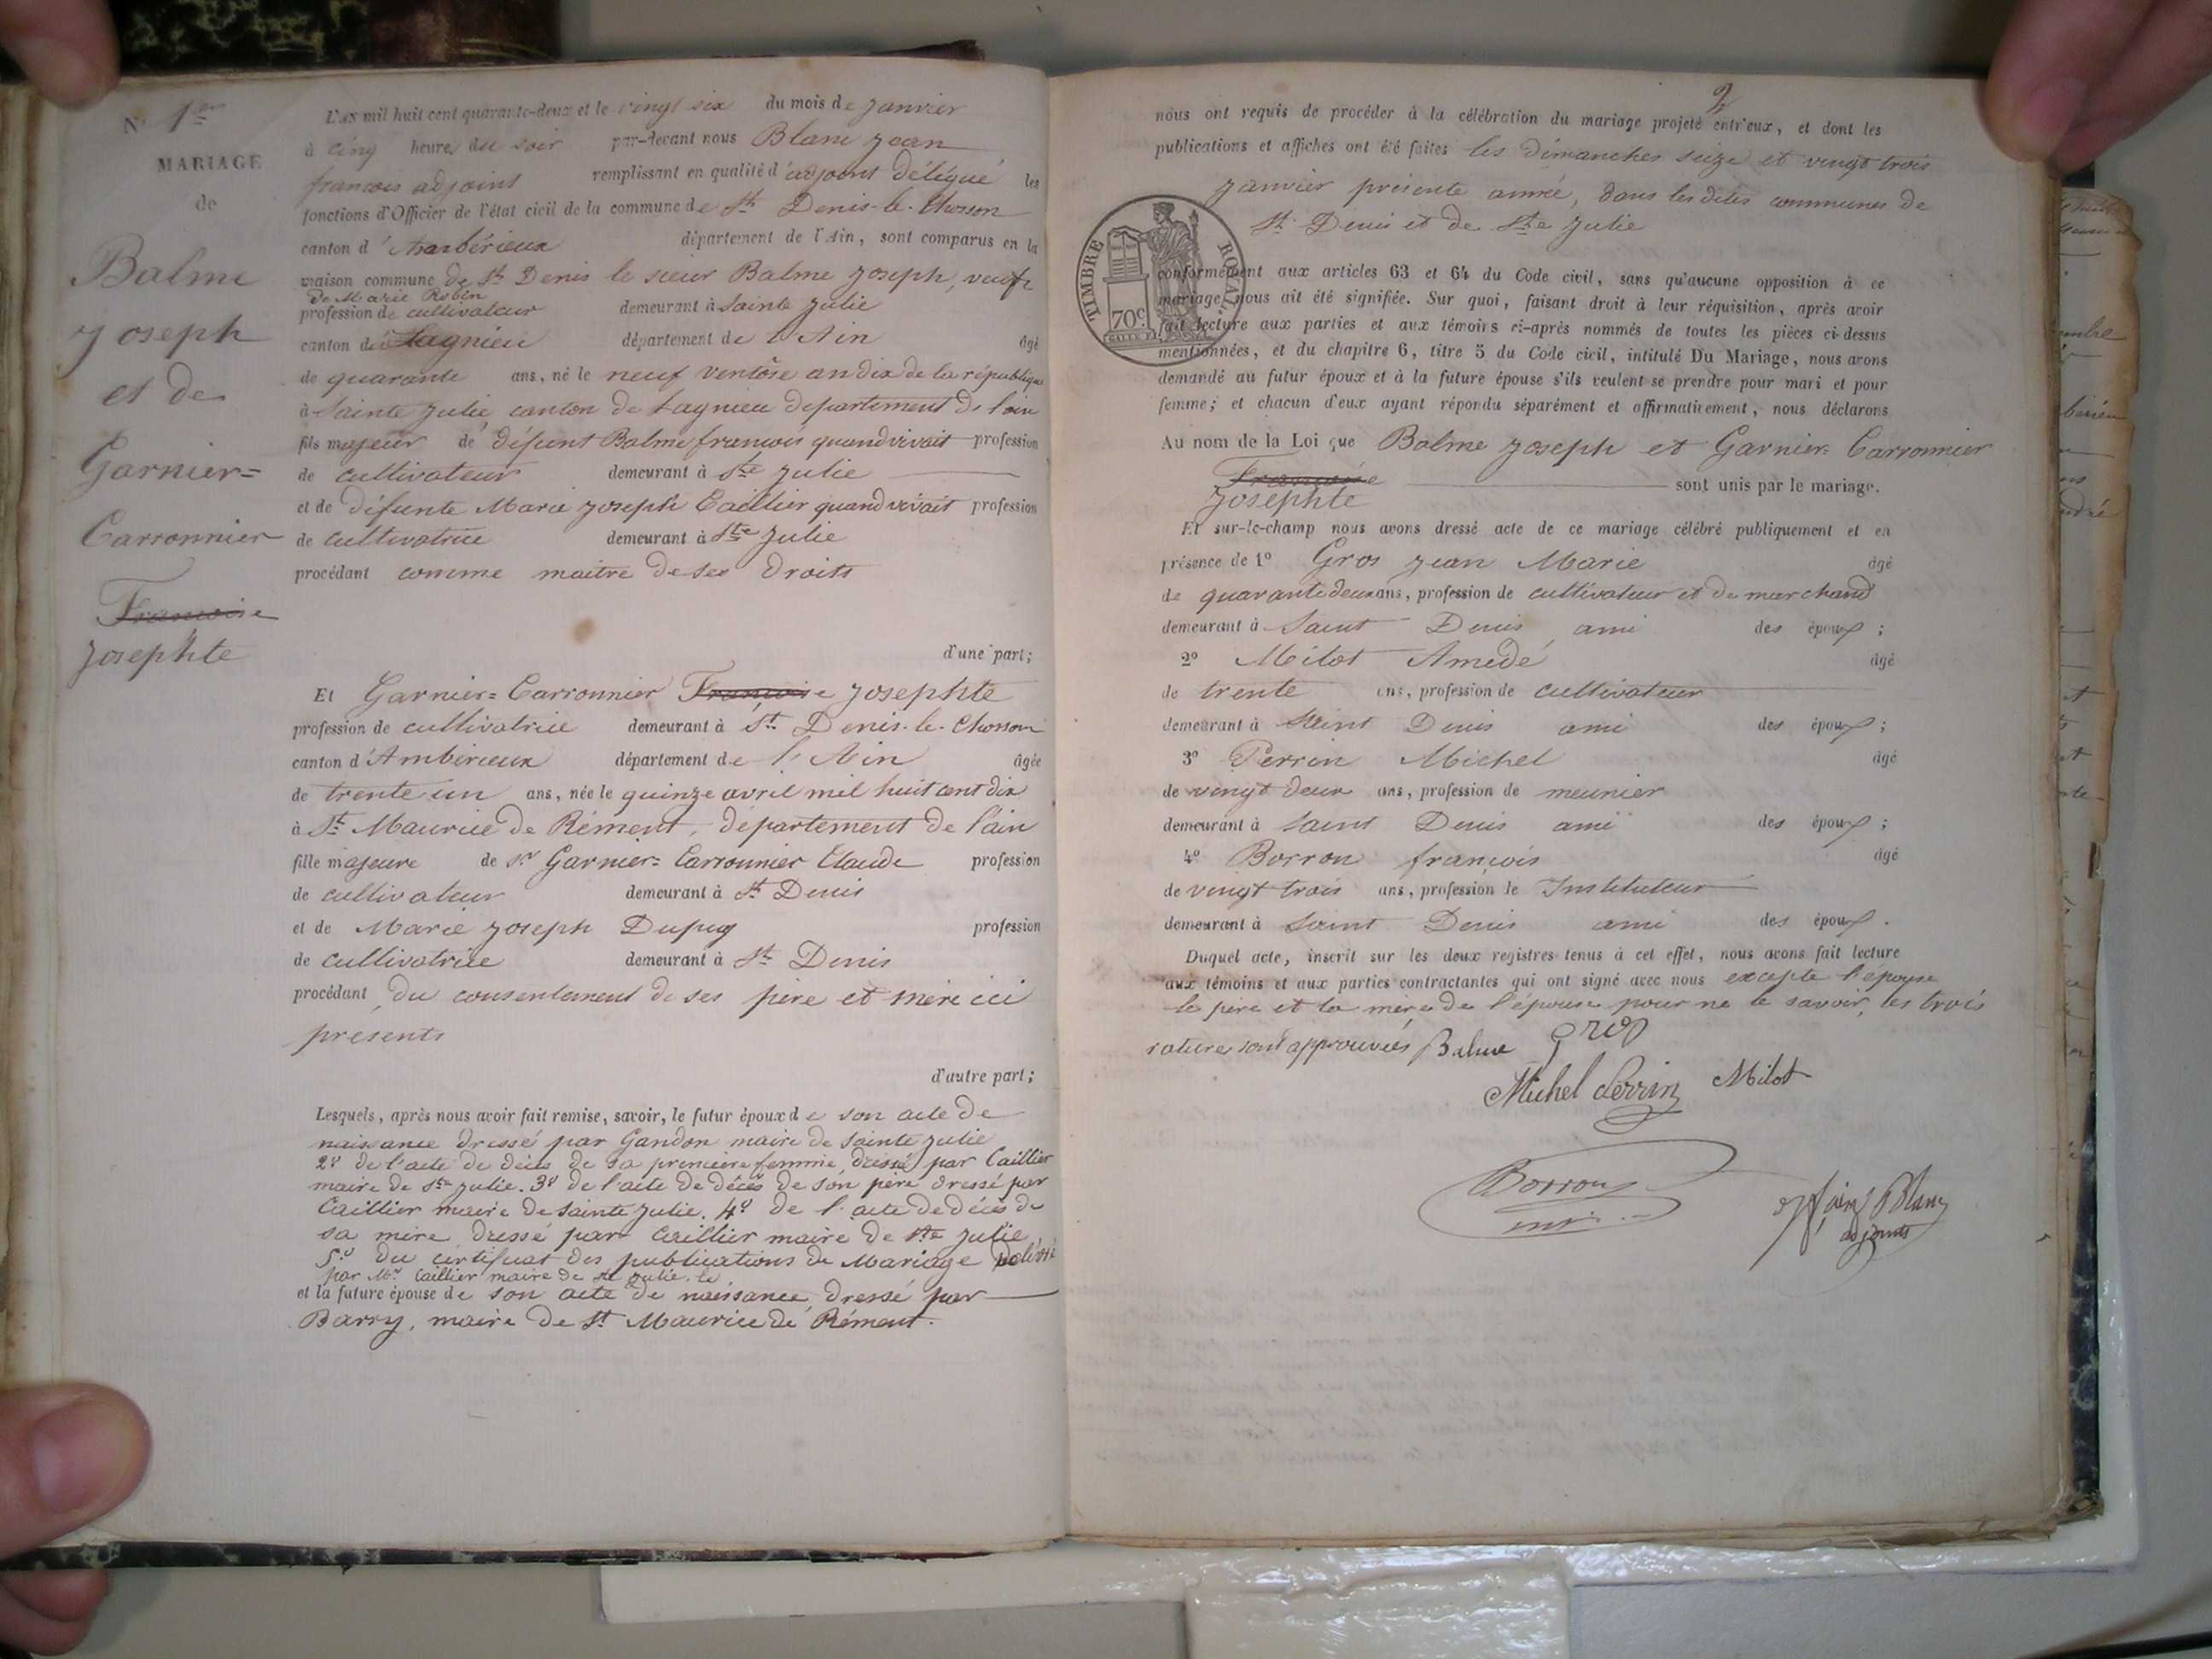 N° 1er
MARIAGE
de
Balme
Joseph
et de
Garnier=
Carronnier
Françoise
Josephte
L'AN mil huit cent quarante-deux et le vingt six du mois de janvier
à cinq heures du soir par-devant nous Blanc jean
francois adjoint remplissant en qualité d'adjoint délégué les
fonctions d'Officier de l'état civil de la commune de St Denis-le-Chosson
canton d'Ambérieux département de l'Ain, sont comparus en la
maison commune de St Denis le sieur Balme joseph, veuf
de Marie Robin
profession de cultivateur demeurant à Sainte Julie
canton de Lagnieu département de l'Ain âgé
de quarante ans, né le neuf ventôse an dix de la république
à Sainte Julie canton de Lagnieu département de l'ain
fils majeur de défunt Balme francois quand vivait profession
de cultivateur demeurant à Ste Julie
et de défunte Marie joseph Caillier quand vivait profession
de cultivatrice demeurant à Ste Julie
procédant comme maitre de ses droits
d'une part;
Et Garnier=Carronnier Françoise josephte
profession de cultivatrice demeurant à St Denis-le-Chosson
canton d'Ambérieux département de l'Ain âgée
de trente un ans, née le quinze avril mil huit cent dix
à St Maurice de Rément, département de l'ain
fille majeure de sr Garnier=Carronnier Claude profession
de cultivateur demeurant à St Denis
et de Marie joseph Dupuy profession
de cultivatrice demeurant à St Denis
procédant du consentement de ses père et mère ici
présents
d'autre part;
Lesquels, après nous avoir fait remise, savoir, le futur époux de son acte de
naissance dressé par Gandon maire de Sainte Julie
2° de l'acte de décès de sa première femme, dressé par Caillier
maire de Ste Julie. 3° de l'acte de décès de son père dressé par
Caillier maire de Sainte Julie. 4° de l'acte de décès de
sa mère dressé par Caillier maire de Ste Julie
5° du certificat des publications de Mariage délivré
par Mr Caillier maire de Ste Julie. le
et la future épouse de son acte de naissance dressé par
Barry, maire de St Maurice de Rément.
2
nous ont requis de procéder à la célébration du mariage projeté entr'eux, et dont les
publications et affiches ont été faites les dimanches seize et vingt trois
janvier présente année, dans les dites communes de
St Denis et de Ste Julie
TIMBRE ROYAL.
70c
conformément aux articles 63 et 64 du Code civil, sans qu'aucune opposition à ce
mariage nous ait été signifiée. Sur quoi, faisant droit à leur réquisition, après avoir
fait lecture aux parties et aux témoins ci-après nommés de toutes les pièces ci-dessus
mentionnées, et du chapitre 6, titre 5 du Code civil, intitulé Du Mariage, nous avons
demandé au futur époux et à la future épouse s'ils veulent se prendre pour mari et pour
femme; et chacun d'eux ayant répondu séparément et affirmativement, nous déclarons
Au nom de la Loi que Balme joseph et Garnier=Carronnier
Françoise sont unis par le mariage.
Josephte
Et sur-le-champ nous avons dressé acte de ce mariage célébré publiquement et en
présence de 1° Gros jean Marie âgé
de quarante deux ans, profession de cultivateur et de marchand
demeurant à Saint Denis ami des époux;
2° Milot Amedé âgé
de trente ans, profession de cultivateur
demeurant à Saint Denis ami des époux;
3° Perrin Michel âgé
de vingt deux ans, profession de meunier
demeurant à Saint Denis ami des époux;
4° Borron françois âgé
de vingt trois ans, profession de Instituteur
demeurant à Saint Denis ami des époux.
Duquel acte, inscrit sur les deux registres tenus à cet effet, nous avons fait lecture
aux témoins et aux parties contractantes qui ont signé avec nous excepté l'épouse
le père et la mère de l'épouse pour ne le savoir, les trois
ratures sont approuvées Balme gros
Michel Perrin Milot
Borron
Blanc
adjoint